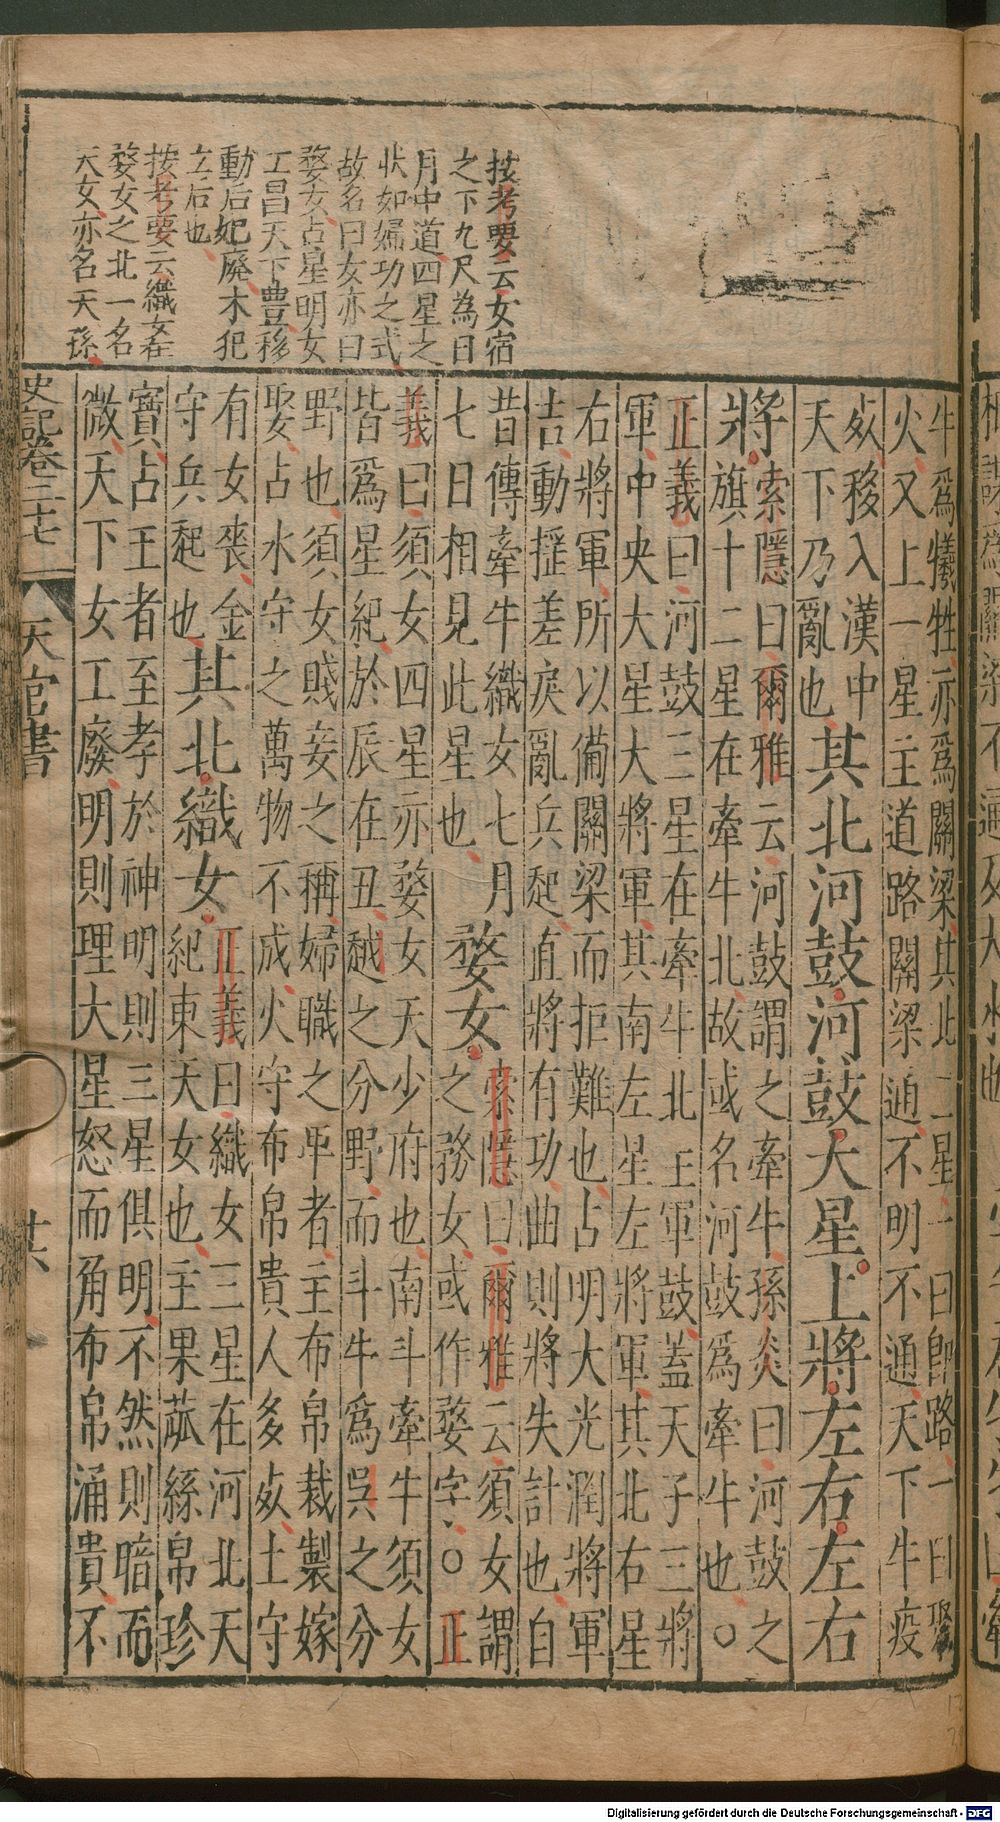 按考要云女宿
之下九尺為日
月中道四星之
狀如婦功之式
故名曰女亦曰
婺女占星明女
工昌天下豊移
動后妃廢木犯
立后也
按考要云織女在
婺女之北一名
天女亦名天孫
牛爲犧牲亦爲關梁其北二星一曰即路一曰聚
火又上一星主道路關梁通不明不通天下牛疫
死移入漢中
天下乃亂也其北河鼓河鼓大星上將左右左右
將索隱曰爾雅云河鼓謂之牽牛孫炎曰河鼓之
旗十二星在牽牛北故或名河鼓爲牽牛也○
正義曰河鼓三星在牽牛北主軍鼓蓋天子三將
軍中央大星大將軍其南左星左將軍其北右星
右將軍所以備關梁而拒難也占明大光潤將軍
吉動搖差戾亂兵起直將有功曲則將失計也自
昔傳牽牛織女七月
七日相見此星也婺女索隱曰爾雅云須女謂
之務女或作婺字○正
義曰須女四星亦婺女天少府也南斗牽牛須女
皆爲星紀於辰在丑越之分野而斗牛爲吳之分
野也須女賤妾之稱婦職之卑者主布帛裁製嫁
娶占水守之萬物不成火守布帛貴人多死土守
有女喪金
守兵起也其北織女正義曰織女三星在河北天
紀東天女也主果蓏絲帛珍
寶占王者至孝於神明則三星俱明不然則暗而
微天下女工廢明則理大星怒而角布帛涌貴不
史記卷二十七
天官書
Digitalisierung gefördert durch die Deutsche Forschungsgemeinschaft - DFG